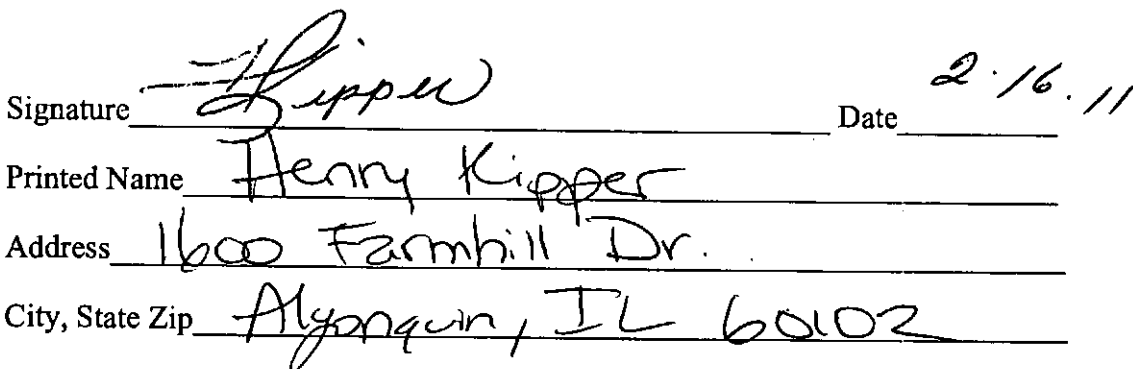 Signature HKipper Date 2.16.11
Printed Name Henry Kipper
Address 1600 Farmhill Dr.
City, State Zip Algonquin, IL 60102